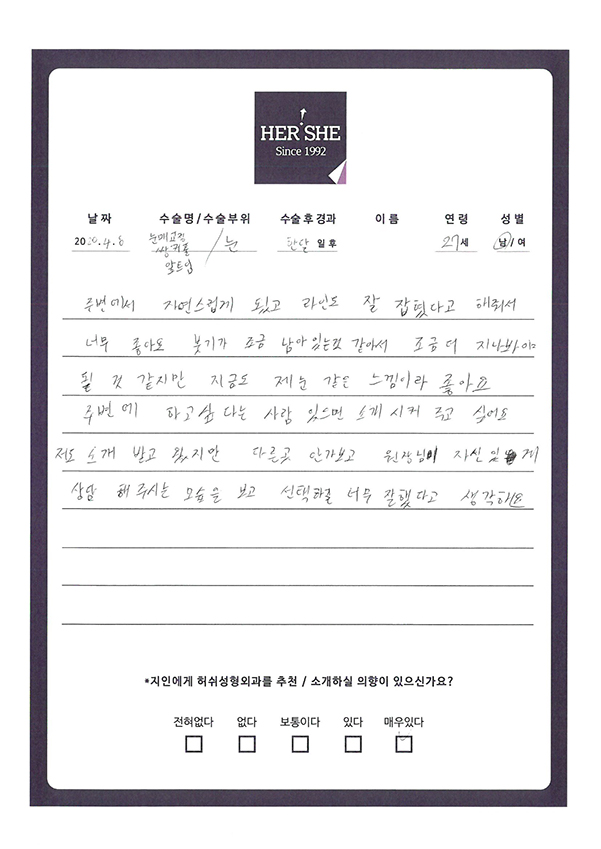 HER SHE
Since 1992
날 짜 수술명 / 수술부위 수술 후 경과 이 름 연 령 성 별
2020.4.8 눈매교정 / 눈 한달 일 후 27세 남 / 여
쌍커풀
앞트임
주변에서 자연스럽게 됬고 라인도 잘 잡혔다고 해줘서
너무 좋아요 붓기가 조금 남아있는것 같아서 조금 더 지나봐야
될 것 같지만 지금도 제 눈 같은 느낌이라 좋아요
주변에 하고싶다는 사람 있으면 소개시켜 주고 싶어요
저도 소개 받고 왔지만 다른곳 안가보고 원장님이 자신있게
상담 해주시는 모습을 보고 선택하길 너무 잘했다고 생각해요
*지인에게 허쉬성형외과를 추천 / 소개하실 의향이 있으신가요?
전혀없다 없다 보통이다 있다 매우있다